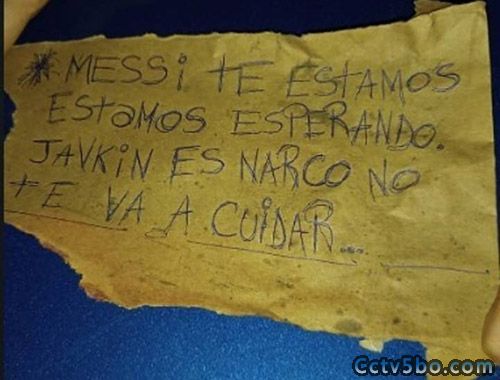 *MESSi tE EStAMOS
EStaMOS ESPERANDO.
JAVKiN ES NARCO NO
tE VA A CUiDAR...
Cctv5bo.com